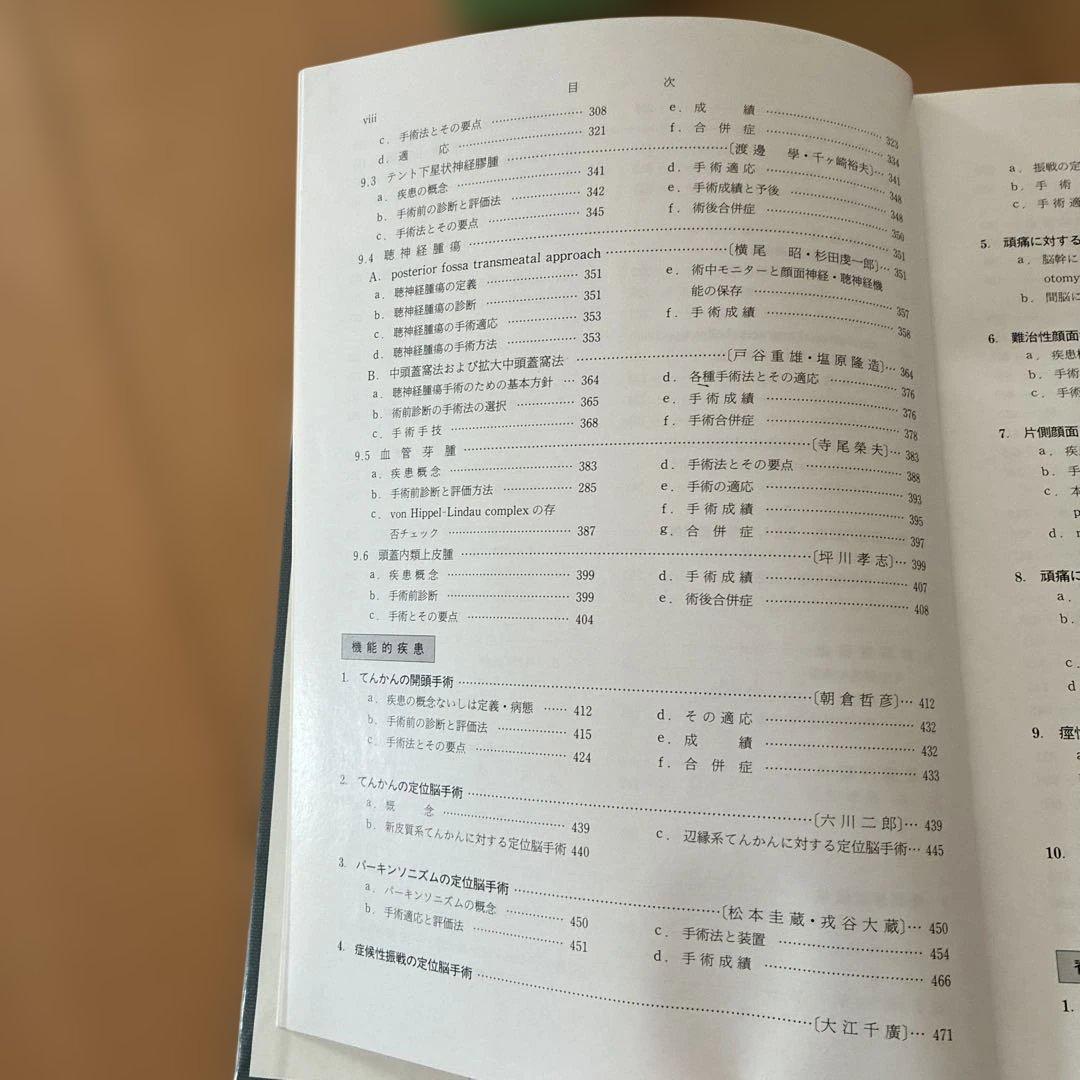 目 次
viii
c. 手術法とその要点 …… 308
d. 適 応 …… 321
e. 成 績 …… 323
f. 合 併 症 …… 334
9.3 テント下星状神経膠腫 …… 〔渡邊 學・千ヶ崎裕夫〕… 341
a. 疾患の概念 …… 341
b. 手術前の診断と評価法 …… 342
c. 手術法とその要点 …… 345
d. 手術適応 …… 348
e. 手術成績と予後 …… 348
f. 術後合併症 …… 350
9.4 聴神経腫瘍 …… 351
A. posterior fossa transmeatal approach …… 〔横尾 昭・杉田虔一郎〕… 351
a. 聴神経腫瘍の定義 …… 351
b. 聴神経腫瘍の診断 …… 351
c. 聴神経腫瘍の手術適応 …… 353
d. 聴神経腫瘍の手術方法 …… 353
e. 術中モニターと顔面神経・聴神経機
能の保存 …… 357
f. 手術成績 …… 358
B. 中頭蓋窩法および拡大中頭蓋窩法 …… 〔戸谷重雄・塩原隆造〕… 364
a. 聴神経腫瘍手術のための基本方針 … 364
b. 術前診断の手術法の選択 …… 365
c. 手術手技 …… 368
d. 各種手術法とその適応 …… 376
e. 手術成績 …… 376
f. 手術合併症 …… 378
9.5 血管芽腫 …… 〔寺尾榮夫〕… 383
a. 疾患概念 …… 383
b. 手術前診断と評価方法 …… 285
c. von Hippel-Lindau complex の存
否チェック …… 387
d. 手術法とその要点 …… 388
e. 手術の適応 …… 393
f. 手術成績 …… 395
g. 合 併 症 …… 397
9.6 頭蓋内類上皮腫 …… 〔坪川孝志〕… 399
a. 疾患概念 …… 399
b. 手術前診断 …… 399
c. 手術とその要点 …… 404
d. 手術成績 …… 407
e. 術後合併症 …… 408
機能的疾患
1. てんかんの開頭手術 …… 〔朝倉哲彦〕… 412
a. 疾患の概念ないしは定義・病態 …… 412
b. 手術前の診断と評価法 …… 415
c. 手術法とその要点 …… 424
d. その適応 …… 432
e. 成 績 …… 432
f. 合 併 症 …… 433
2. てんかんの定位脳手術 …… 〔六川二郎〕… 439
a. 概 念 …… 439
b. 新皮質系てんかんに対する定位脳手術 440
c. 辺縁系てんかんに対する定位脳手術… 445
3. パーキンソニズムの定位脳手術 …… 〔松本圭蔵・戎谷大蔵〕… 450
a. パーキンソニズムの概念 …… 450
b. 手術適応と評価法 …… 451
c. 手術法と装置 …… 454
d. 手術成績 …… 466
4. 症候性振戦の定位脳手術 …… 〔大江千廣〕… 471
a. 振戦の定
b. 手 術
c. 手術適
5. 頑痛に対する
a. 脳幹に
otomy
b. 間脳に
6. 難治性顔面
a. 疾患
b. 手術
c. 手術
7. 片側顔面
a. 疾
b. 手
c. 本
p
d. r
8. 頑痛に
a.
b.
c.
d
9. 痙性
a
10.
1.